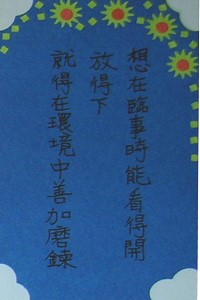 想在臨事時能看得開
放得下
就得在環境中善加磨鍊